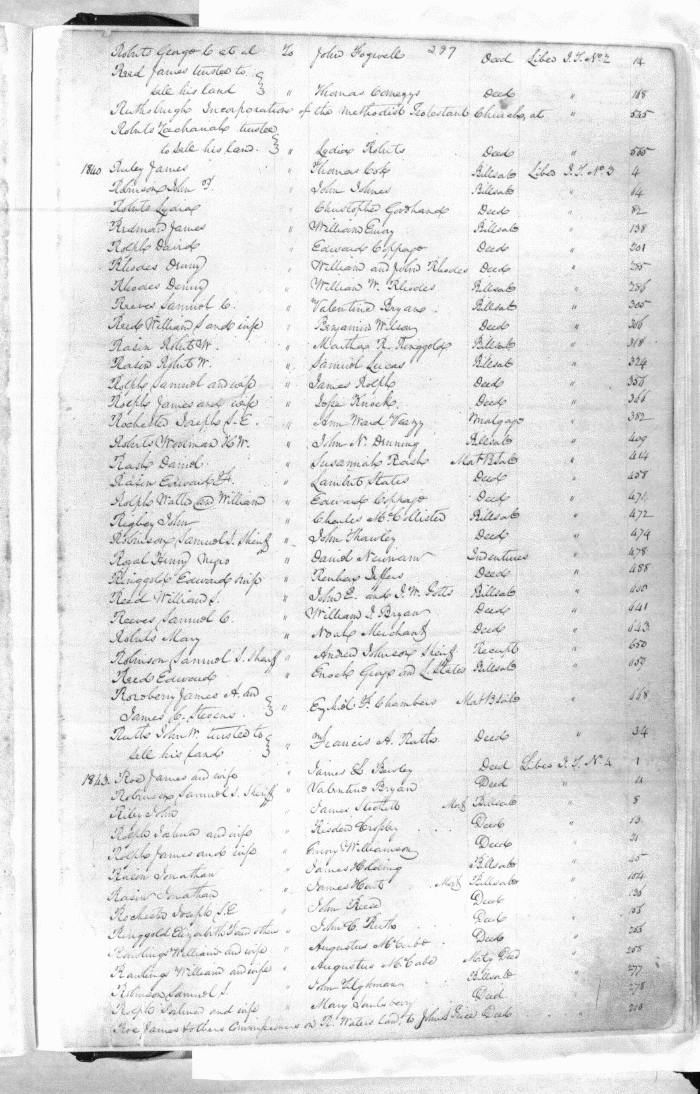 Roberts George C et al To John Fogwell 297 Deed Liber J.T. No 2 14
Reed James trustee to
sale his land " Thomas Comegys Deed " 168
Ruthsburgh Incorporation of the Methodist Protestant Church, at " 535
Roberts Zachariah trustee
to Sale his land. " Lydia Roberts Deed " 565
1840 Ruley James " Thomas Cox Billsale Liber J.T. No 3 4
Robinson John F. " John Johnes Billsale " 64
Roberts Lydia " Christopher Goodhand Deed " 82
Redman James " William Emory Billsale " 138
Rolph David " Edward Coppage Deed " 201
Rhodes Denny " William and John Rhodes Deed " 255
Rhodes Denny " William W. Rhodes Billsale " 256
Reeves Samuel C. " Valentine Bryan Billsale " 305
Reed William S and wife " Benjamin Wilson Deed " 306
Rasin Robert W. " Martha R. Ringgold Billsale " 318
Rasin Robert W. " Samuel Lucas Billsale " 324
Rolph Samuel and wife " James Rolph Deed " 356
Rolph James and wife " Jesse Knock Deed " 366
Rochester Joseph S. E. " Ann Ward Veazy Mortgage " 382
Roberts Woolman H W. " John N. Dinning Billsale " 409
Rash Daniel " Susannah Rash Mat B Sale " 414
Rasin Edward F. " Lambert States Deed " 458
Rolph Walter and William " Edward Coppage Deed " 471
Rigbey John " Charles McCollister Billsale " 472
Robinson Samuel S. Sheriff " John Thawley Deed " 474
Royal Henry Negro " David Newnam Indentures " 478
Ringgold Edward wife " Reuben Jeffers Deed " 488
Reed William S. " John E. and J. W. Potts Billsale " 600
Reeves Samuel C. " William J Bryan Deed " 641
Roberts Mary " Noah Merchant Deed " 643
Robinson Samuel S. Sheriff " Andrew Johnson Sheriff Receipt " 650
Reed Edward " Enoch George and L. States Billsale " 657
Rozzberry James A. and
James C. Stevens. " Ezekiel F. Chambers Mat B Sale " 668
Ruth John W. trusted to
sell his land " Francis A. Ruth Deed " 34
1843 Roe James and wife " James L Busley Deed Liber J.T. No 4 1
Robinson Samuel S. Sheriff " Valentine Bryan Deed " 4
Riley John " James Mat Billsale " 8
Rolph Joshua and wife " Risdon Cropley Deed " 13
Rolph James and wife " Emory Williamson Deed " 21
Rasin Jonathan " James Hilding Billsale " 45
Rasin Jonathan " James Hart Mat Billsale " 104
Rochester Joseph S. E " John Reed Deed " 136
Ringgold Elizabeth T and others " John C. Ruth Deed " 156
Rawlings William and wife " Augustus McCabe Deed " 255
Rawlings William and wife " Augustus McCabe Deed " 258
Robinson Samuel S. " John Tilghman Billsale " 277
Rolph Joshua and wife " Mary Saulsbury Deed " 278
Roe James & others Commissioners on R. Waters Land, to John Deed "